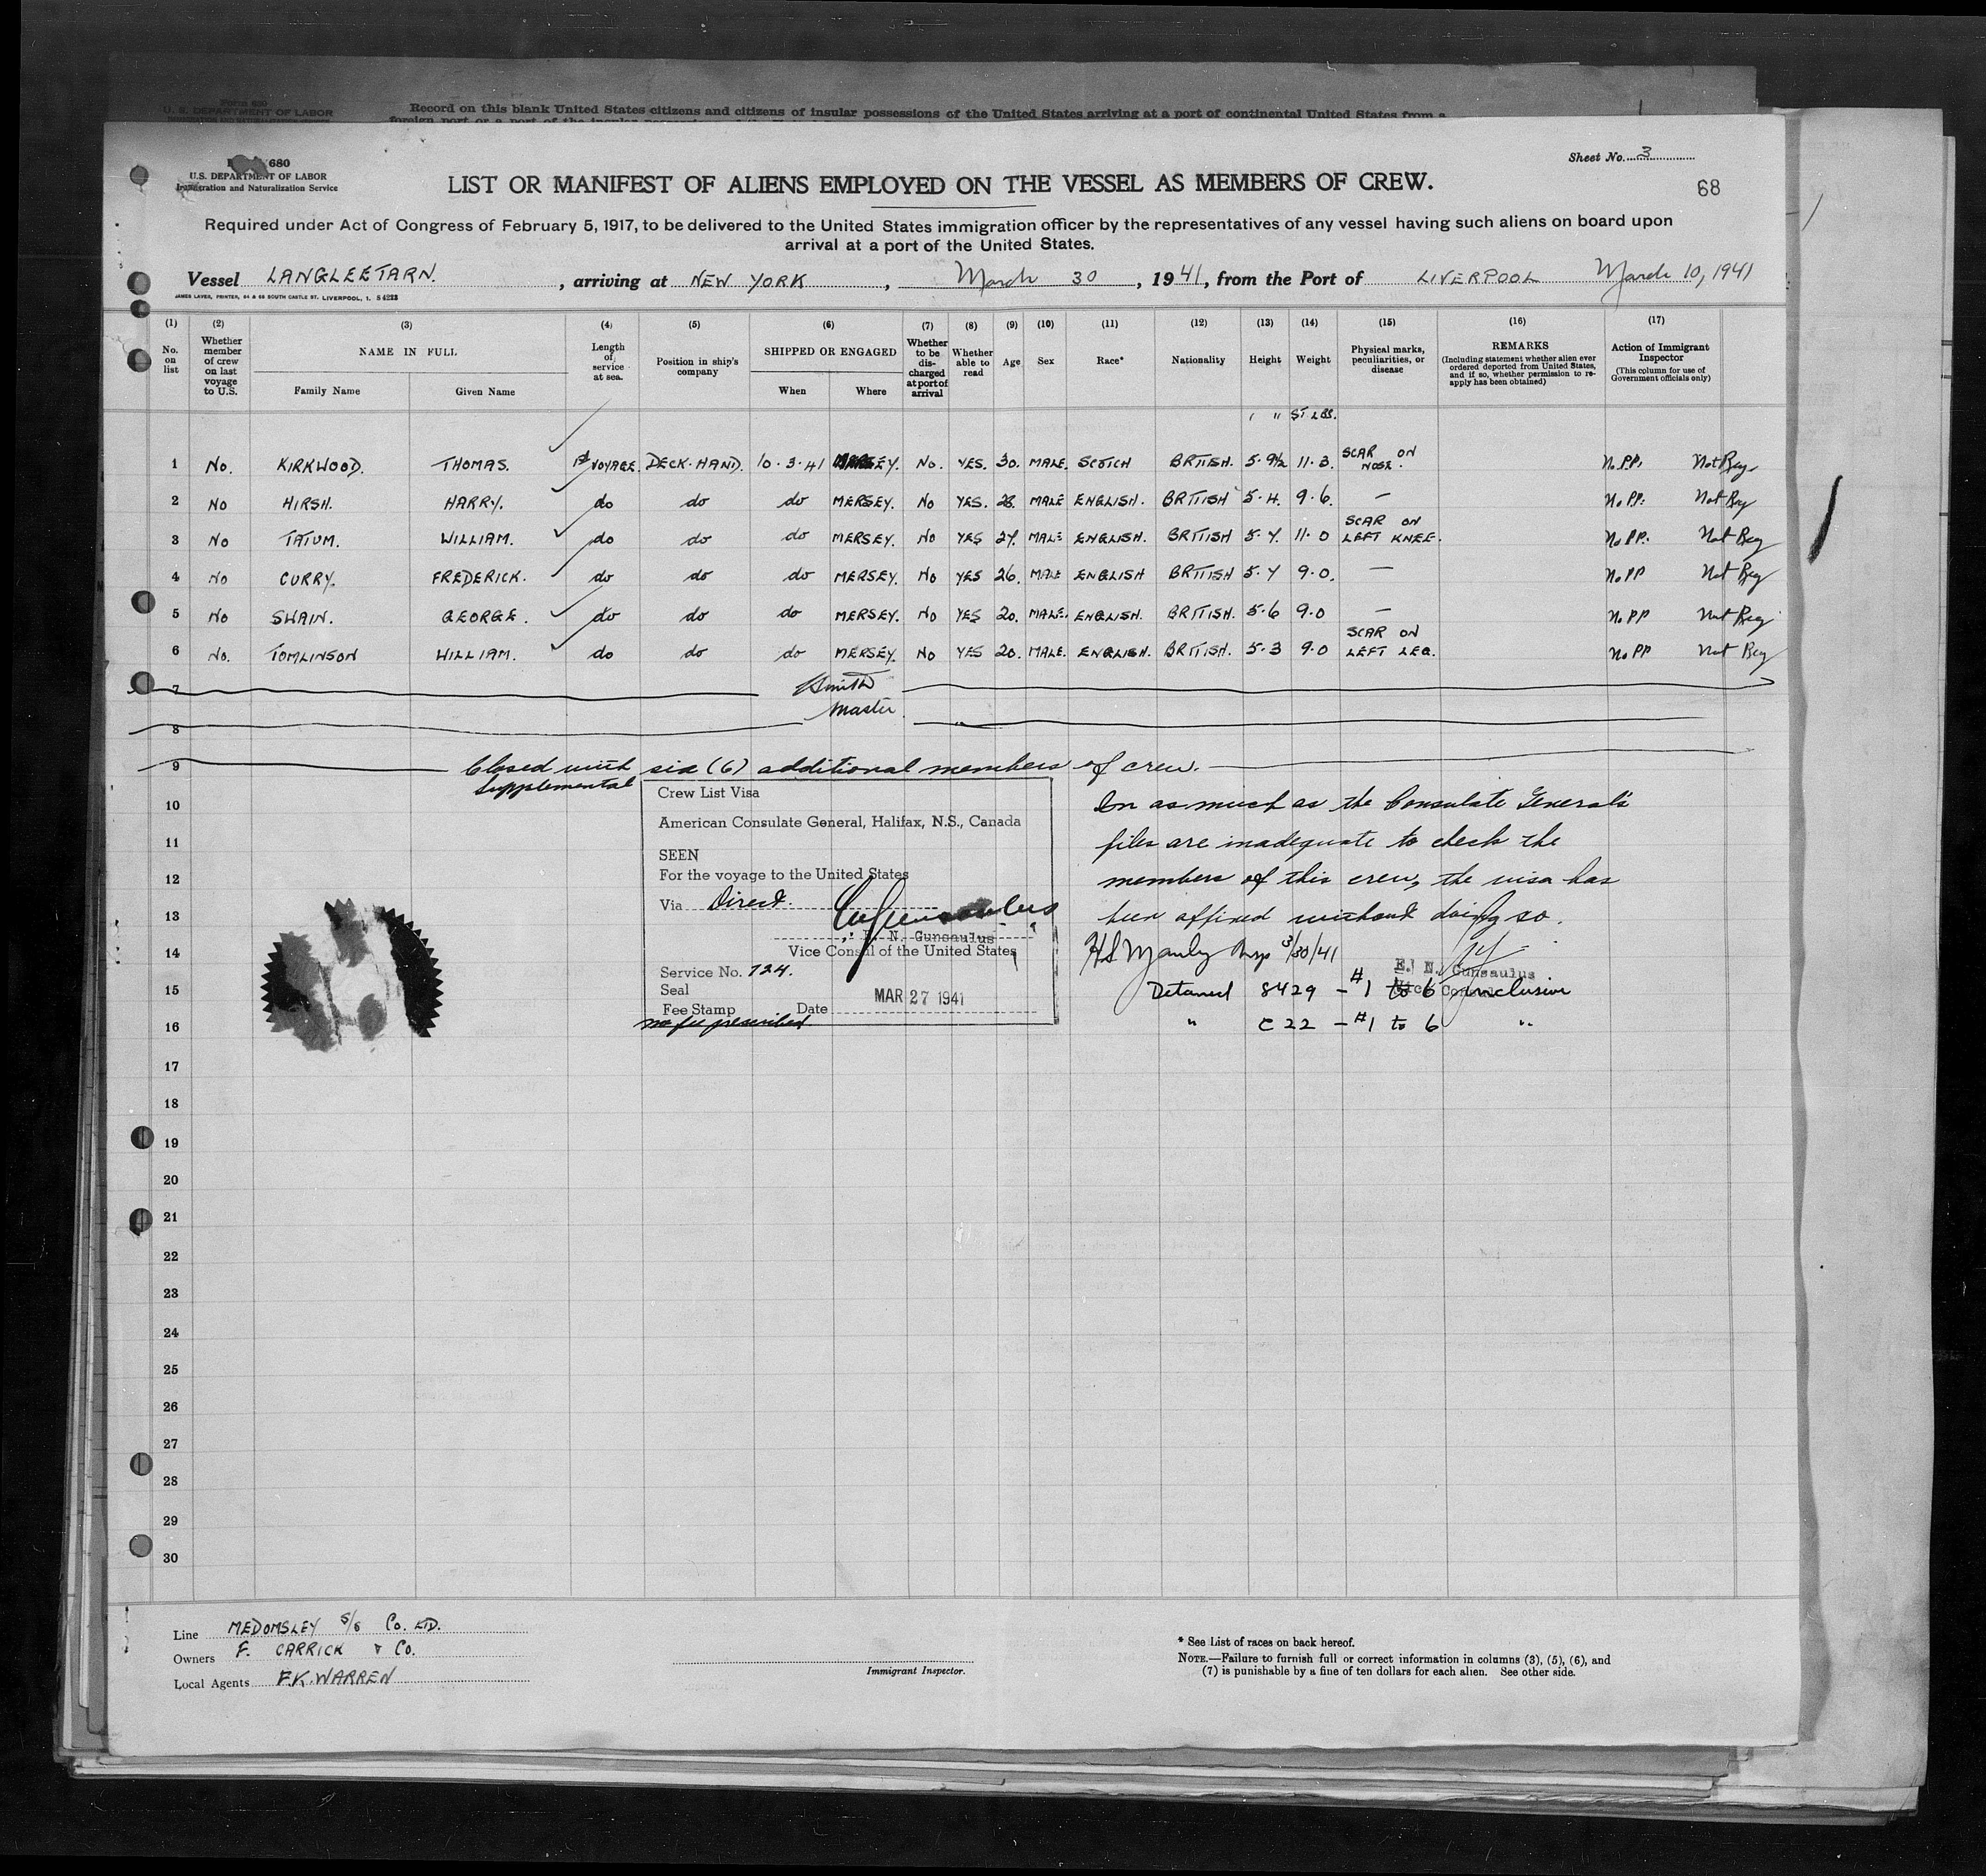 Form 680
U. S. DEPARTMENT OF LABOR
Record on this blank United States citizens and citizens of insular possessions of the United States arriving at a port of continental United States from a
680
U.S. DEPARTMENT OF LABOR
Immigration and Naturalization Service
Sheet No. 3
LIST OR MANIFEST OF ALIENS EMPLOYED ON THE VESSEL AS MEMBERS OF CREW.
68
Required under Act of Congress of February 5, 1917, to be delivered to the United States immigration officer by the representatives of any vessel having such aliens on board upon
arrival at a port of the United States.
Vessel LANGLEETARN. , arriving at NEW YORK , March 30 , 1941, from the Port of LIVERPOOL March 10, 1941
JAMES LAVER, PRINTER, 64 & 66 SOUTH CASTLE ST. LIVERPOOL, 1. S 4223
(1) (2) (3) (4) (5) (6) (7) (8) (9) (10) (11) (12) (13) (14) (15) (16) (17)
No. on list
Whether member of crew on last voyage to U.S.
NAME IN FULL
Family Name Given Name
Length of service at sea.
Position in ship's company
SHIPPED OR ENGAGED
When Where
Whether to be discharged at port of arrival
Whether able to read
Age Sex Race* Nationality Height Weight
Physical marks, peculiarities, or disease
REMARKS
(Including statement whether alien ever ordered deported from United States, and if so, whether permission to re-apply has been obtained)
Action of Immigrant Inspector
(This column for use of Government officials only)
' " ST LBS.
1 No. KIRKWOOD. THOMAS. 1st VOYAGE. DECK. HAND. 10.3.41 MERSEY. No. YES. 30. MALE. SCOTCH BRITISH. 5.9½ 11.3. SCAR ON NOSE. No PP. Not Reg.
2 No HIRSH. HARRY. do do do MERSEY. No YES. 28. MALE ENGLISH. BRITISH 5.4. 9.6. — No PP. Not Reg
3 No TATUM. WILLIAM. do do do MERSEY. No YES 27. MALE ENGLISH. BRITISH 5.7. 11.0 SCAR ON LEFT KNEE. No PP. Not Reg
4 No CURRY. FREDERICK. do do do MERSEY. No YES 26. MALE ENGLISH BRITISH 5.7 9.0. — No PP Not Reg
5 No SWAIN. GEORGE. do do do MERSEY. No YES 20. MALE. ENGLISH. BRITISH. 5.6 9.0 — No PP Not Reg
6 No. TOMLINSON WILLIAM. do do do MERSEY. No YES 20. MALE. ENGLISH. BRITISH. 5.3 9.0 SCAR ON LEFT LEG. No PP Not Reg
7 Smith
Master
8
9 Closed with six (6) additional members of crew.
Supplemental
Crew List Visa
American Consulate General, Halifax, N.S., Canada
SEEN
For the voyage to the United States
Via Direct.
E. N. Gunsaulus
Vice Consul of the United States
Service No. 724.
Seal
Fee Stamp Date MAR 27 1941
no fee prescribed
In as much as the Consulate General's
files are inadequate to check the
members of this crew, the visa has
been affixed without doing so.
E. N. Gunsaulus
Vice Consul
HS Manly Insp 3/30/41
Detained 8429 - #1 to 6 inclusive
" C 22 - #1 to 6 "
10
11
12
13
14
15
16
17
18
19
20
21
22
23
24
25
26
27
28
29
30
Line MEDOMSLEY S/S Co. LTD.
Owners F. CARRICK & Co.
Local Agents F.K. WARREN
Immigrant Inspector.
* See List of races on back hereof.
NOTE.—Failure to furnish full or correct information in columns (3), (5), (6), and
(7) is punishable by a fine of ten dollars for each alien. See other side.